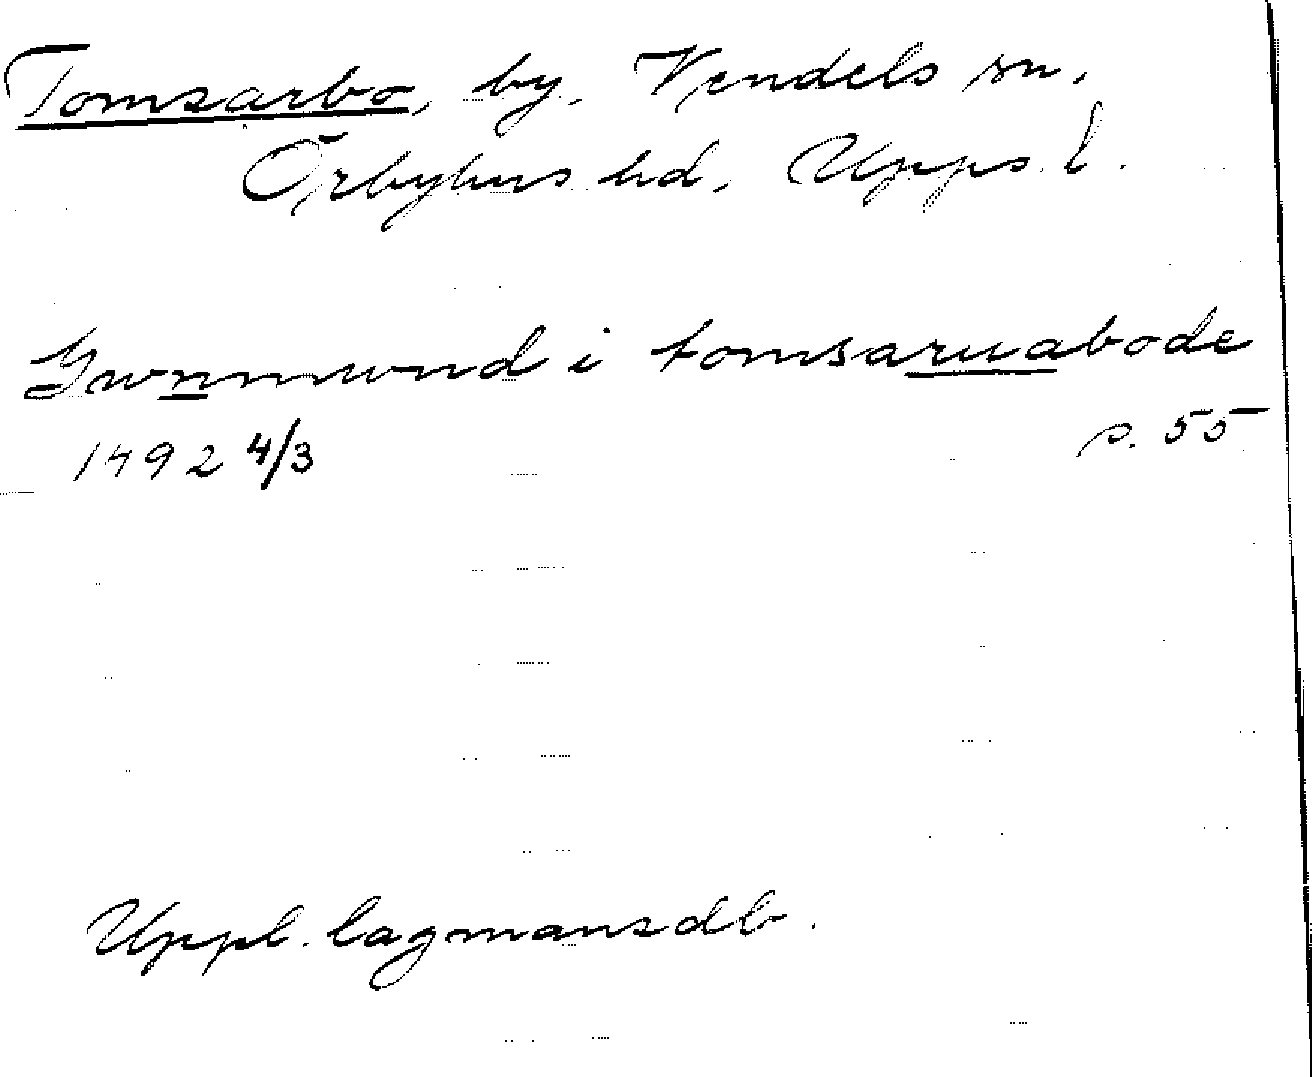 Tomsarbo, by, Vendels sn,
Örbyhus hd, Upps. l.
Gwnmwnd i tomsaruabode
1492 4/3 s. 55
Uppl. lagmansdb.